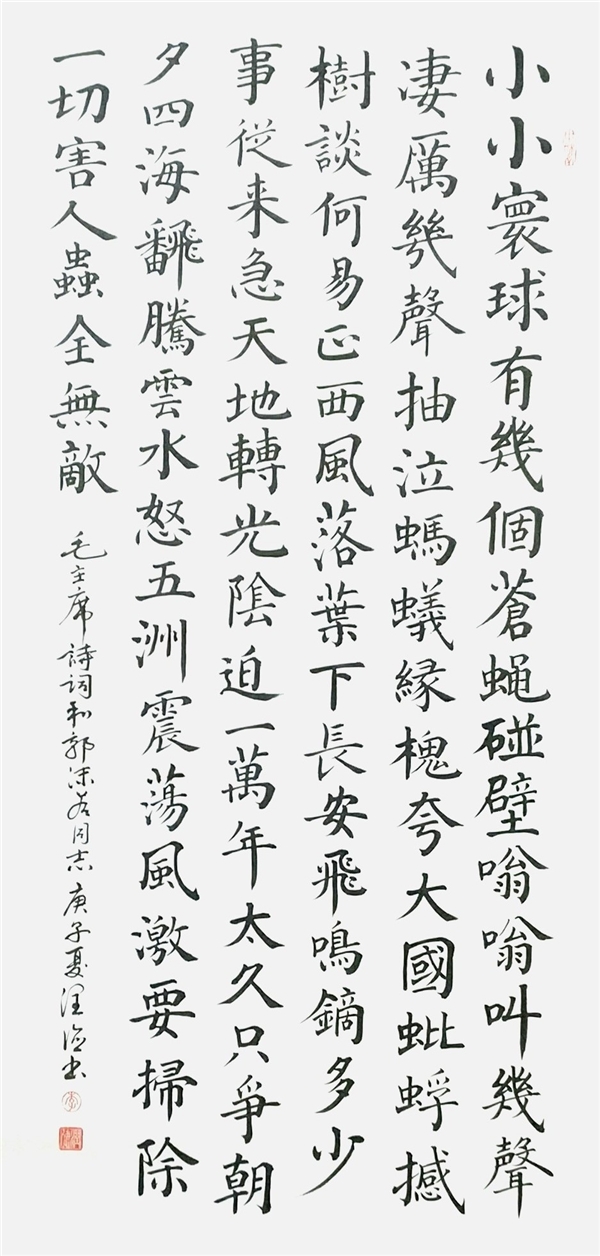 小小寰球有幾個蒼蝇碰壁嗡嗡叫幾聲
凄厲幾聲抽泣螞蟻緣槐夸大國蚍蜉撼
樹談何易正西風落葉下長安飛鳴鏑多少
事従来急天地轉光陰迫一萬年太久只爭朝
夕四海飜騰雲水怒五洲震蕩風激要掃除
一切害人蟲全無敵
毛主席詩詞和郭沫若同志 庚子夏 书